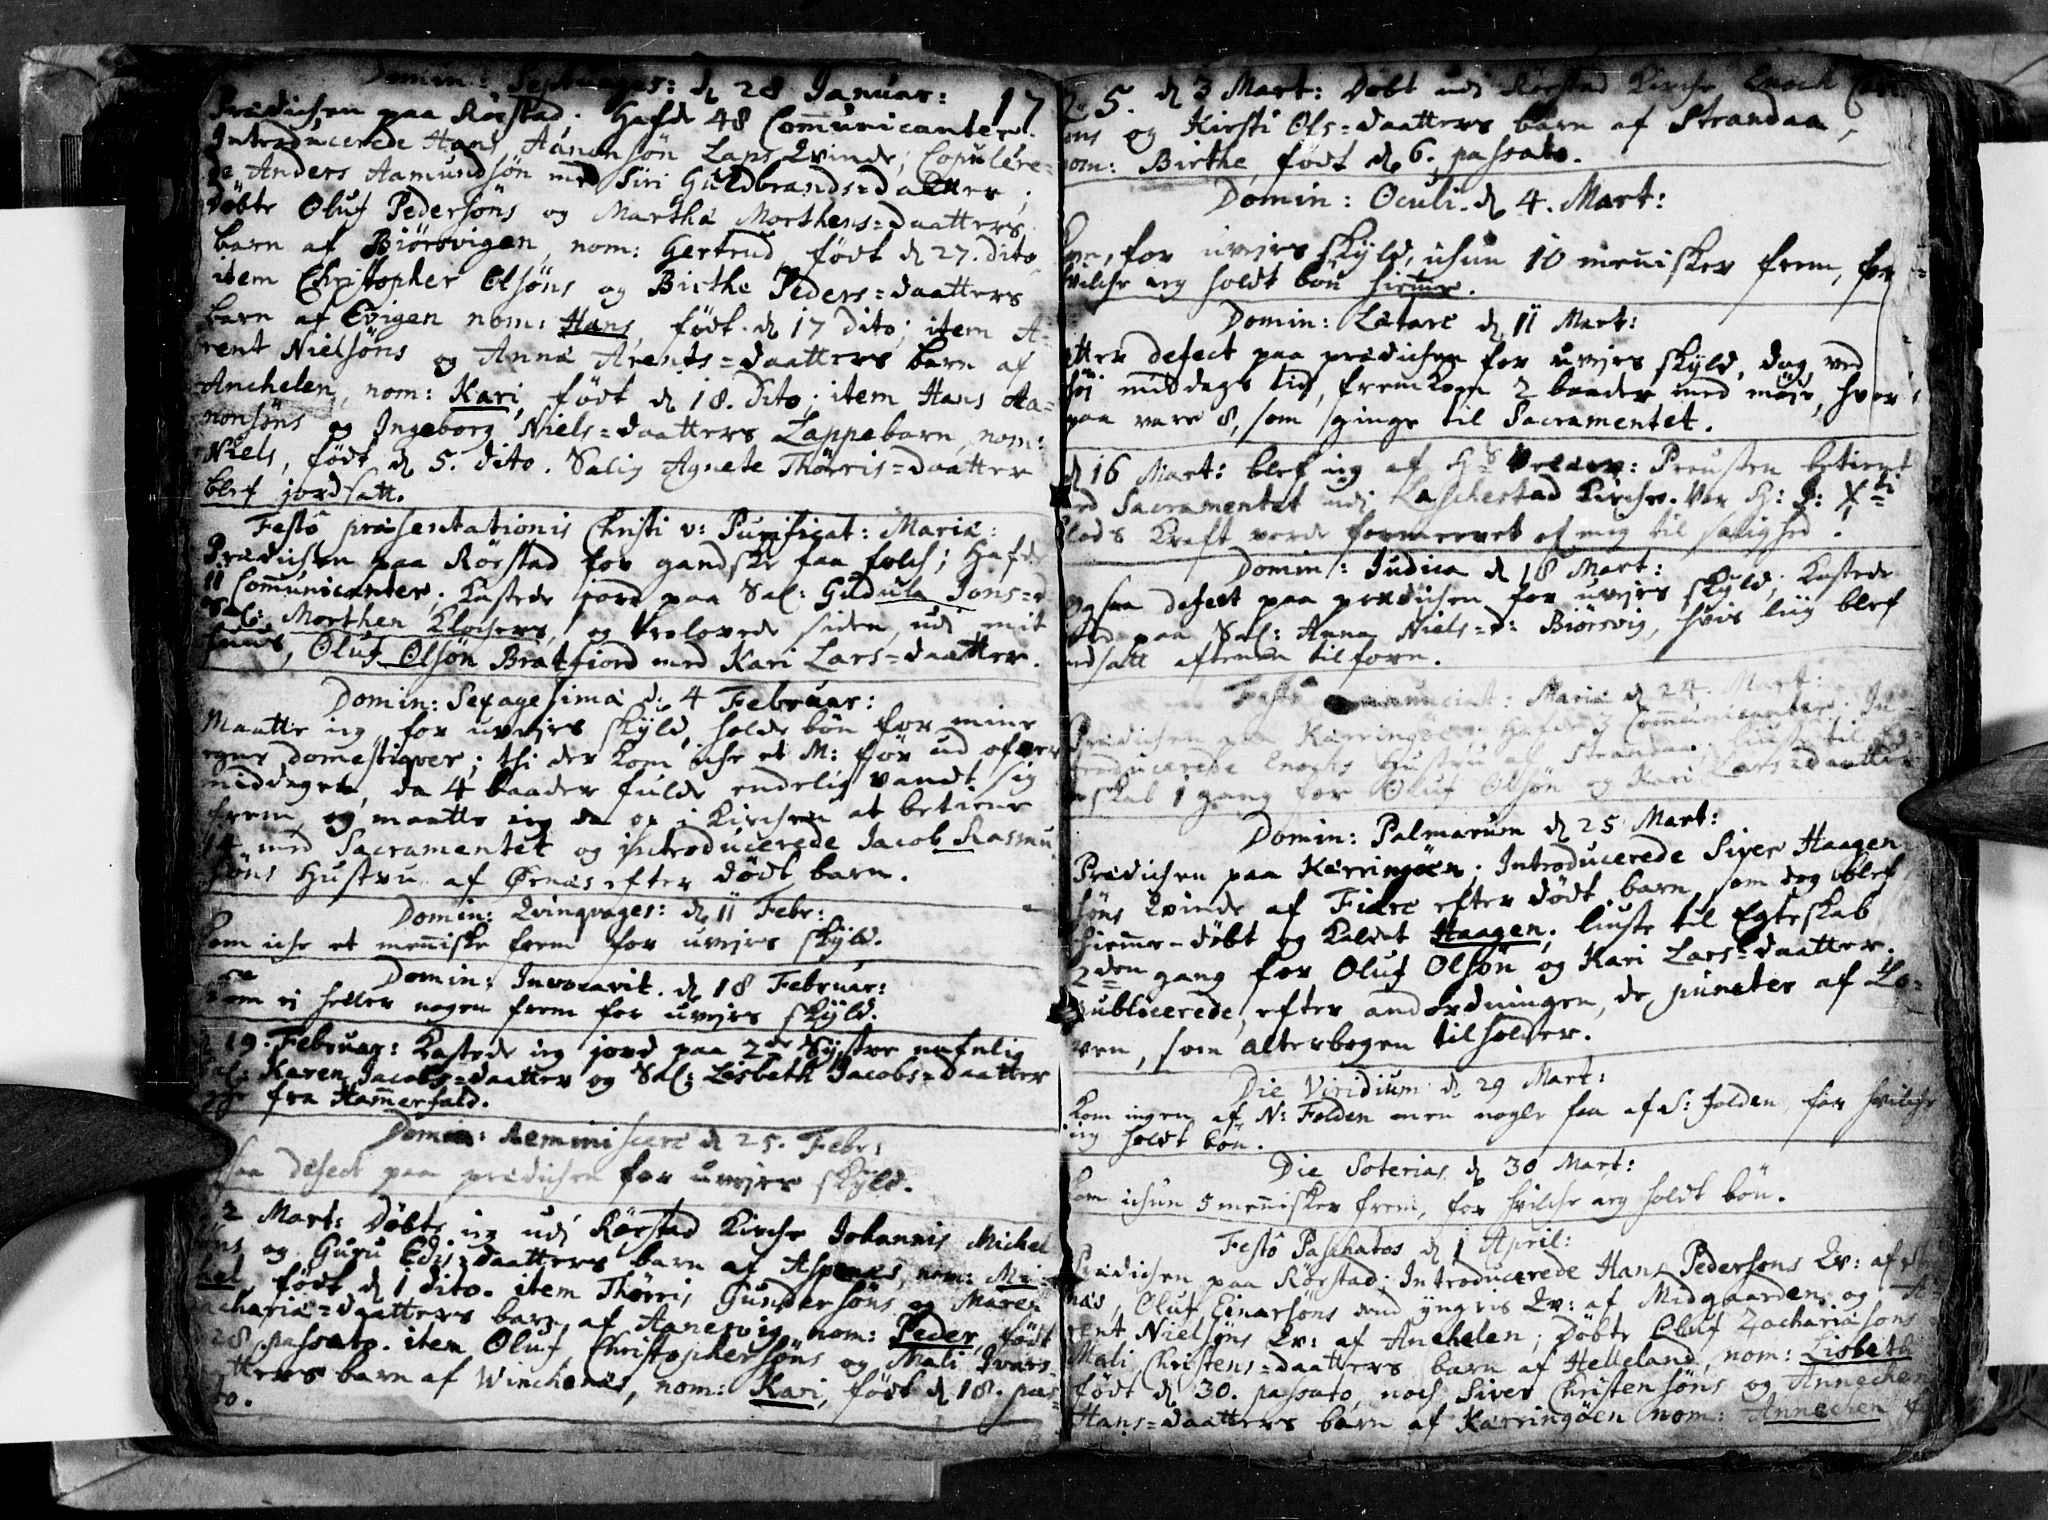 Domin: Septuages: d. 28 Januar: 17
Prædichen paa Rörstad. Hafde 48 Communicanter.
Introducerede Hans Aanonsön Laps Qvinde; Copulere-
de Anders Aamundsön med Siri Guldbrands=daatter;
Döbte Oluf Pedersöns og Martha Morthens=daatters
barn af Biörsvigen, nom: Gertrud, födt d. 27. dito,
item Christopher Olsöns og Birthe Peders=daatters
barn af Evigen nom: Hans, födt d. 17 dito; item A-
rent Nielsöns og Anna Arents=daatters barn af
Anchelen, nom: Kari, födt d. 18. dito; item Hans Aa-
nonsöns og Ingeborg Niels=daatters Lappebarn, nom:
Niels, födt d. 5. dito. Salig Agnete Thörris=daatter
blef jordsatt.
Festô præsentationis Christi v: Purificat: Mariæ:
Prædichen paa Rörstad for gandske faa folch; Hafde
11 Communicanter. Kastede jord paa Sal: Gudula Jons=d
Sal: Morthen Klochers, og trolovede siden, udi mit
huus, Oluf Olsön Bratfiord med Kari Lars=daatter.
Domin: Sexagesima d. 4 Februar:
Maatte ieg, for uvejrs skyld, holde bön for mine
egne domestiqver; thi der kom iche et M: för ud ofver
middagen, da 4 baader fulde endelig vandt sig
frem, og maatte ieg da op i Kirchen at betiene
14 med Sacramentet og introducerede Jacob Rasmu
söns Hustru af Örnæs efter dödt barn.
Domin: Qvinqvages: d. 11 Febr:
Kom iche et menniske frem for uvejrs skyld.
Domin: Invocavit. d. 18 Februar:
Kom ei heller nogen frem for uvejrs skyld.
d. 19. Februar: Kastede ieg jord paa 2de Systre nafnlig
Sal: Karen Jacobs=daatter og Sal: Lisbeth Jacobs=daatter
fra Hammerfald.
Domin: Reminiscere d. 25. Febr:
saa defect paa prædichen for uvejrs skyld.
2 Mart: Döbte ieg udi Rörstad Kirche Johannis Michel
söns og Guru Edis=daatters barn af Aspenes, nom: Mi-
hel, födt d. 1 dito. item Thörris Gundersöns og Maren
Zachariæ=daatters barn af Aanesvig nom: Peder, födt
28 passato. item Oluf Christophersöns og Mali Ivars-
tters barn af Winchenæs, nom: Kari, födt d. 18. pas-
to.
5. d. 3 Mart: Döbt udi Rörstad Kirche Enoch
söns og Kirsti Ols=daatters barn af Strandaa,
nom: Birthe, födt d. 6. passato.
Domin: Oculi. d. 4. Mart:
Kom, for uvejrs skyld, ichun 10 menisker frem, for
hvilche ieg holdt bön hiemme.
Domin: Lætare d. 11 Mart:
Atter defect paa prædichen for uvejrs skyld, dog, ved
höj middags tid, fremkom 2 baader med möje, hvor
paa vare 8, som ginge til Sacramentet.
d. 16 Mart: blef ieg af Hr Prousten betient
med Sacramentet udi Laschestad Kirche. Vor H: J: Xti
blods Kraft vorde formeeret af mig til salighed.
Domin: Judica d. 18 Mart:
Ogsaa defect paa prædichen for uvejrs skyld; Kastede
jord paa Sal: Anna Niels=d: Biörsvig, hvis liig blef
nedsatt aftenen tilforn.
Festô Annunciat: Mariæ d. 24. Mart:
Prædichen paa Kærringöen. Hafde 7 Communicanter. In-
troducerede Enochs Hustru af Strandaa. liuste til Eg-
teskab 1 gang for Oluf Olsön og Kari Lars=daatter
Domin: Palmarum d. 25 Mart:
Prædichen paa Kærringöen. Introducerede Siver Haagen
söns Qvinde af Fiære efter dödt barn, som dog blef
hiemme-döbt og kaldet Haagen; liuste til Egteskab
2den gang for Oluf Olsön og Kari Lars=daatter.
Publicerede, efter andordningen, de puncter af Lo-
ven, som alterbogen tilholder.
Die Viridium d. 29 Mart:
Kom ingen af N: Folden men nogle faa af S: folden, for hvilche
ieg holdt bön.
Die Soterias d. 30 Mart:
Kom ichun 5 mennisker frem, for hvilche ieg holdt bön.
Festô Paschatos d. 1 April:
Prædichen paa Rörstad. Introducerede Hans Pedersöns Qv: af
næs, Oluf Einarsöns dend yngris Qv: af Midgaarden, og A-
rent Nielsöns Qv: af Anchelen; Döbte Oluf Zachariasöns
Mali Christens=daatters barn af Helleland, nom: Lisbeth
födt d. 30. passato, noch Siver Christensöns og Annechen
Hans=daatters barn af Kærringöen nom: Annechen